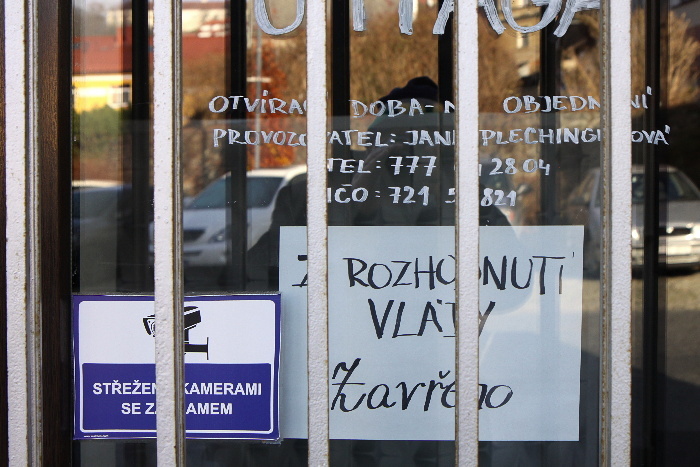 OTVÍRA DOBA- N OBJEDN NÍ
PROVOZ ATEL: JAN PLECHING OVÁ
TEL: 777 28 04
IČO: 721 5 821
Z ROZHODNUTÍ
VLÁDY
Zavřeno
STŘEŽENO KAMERAMI
SE ZÁZNAMEM